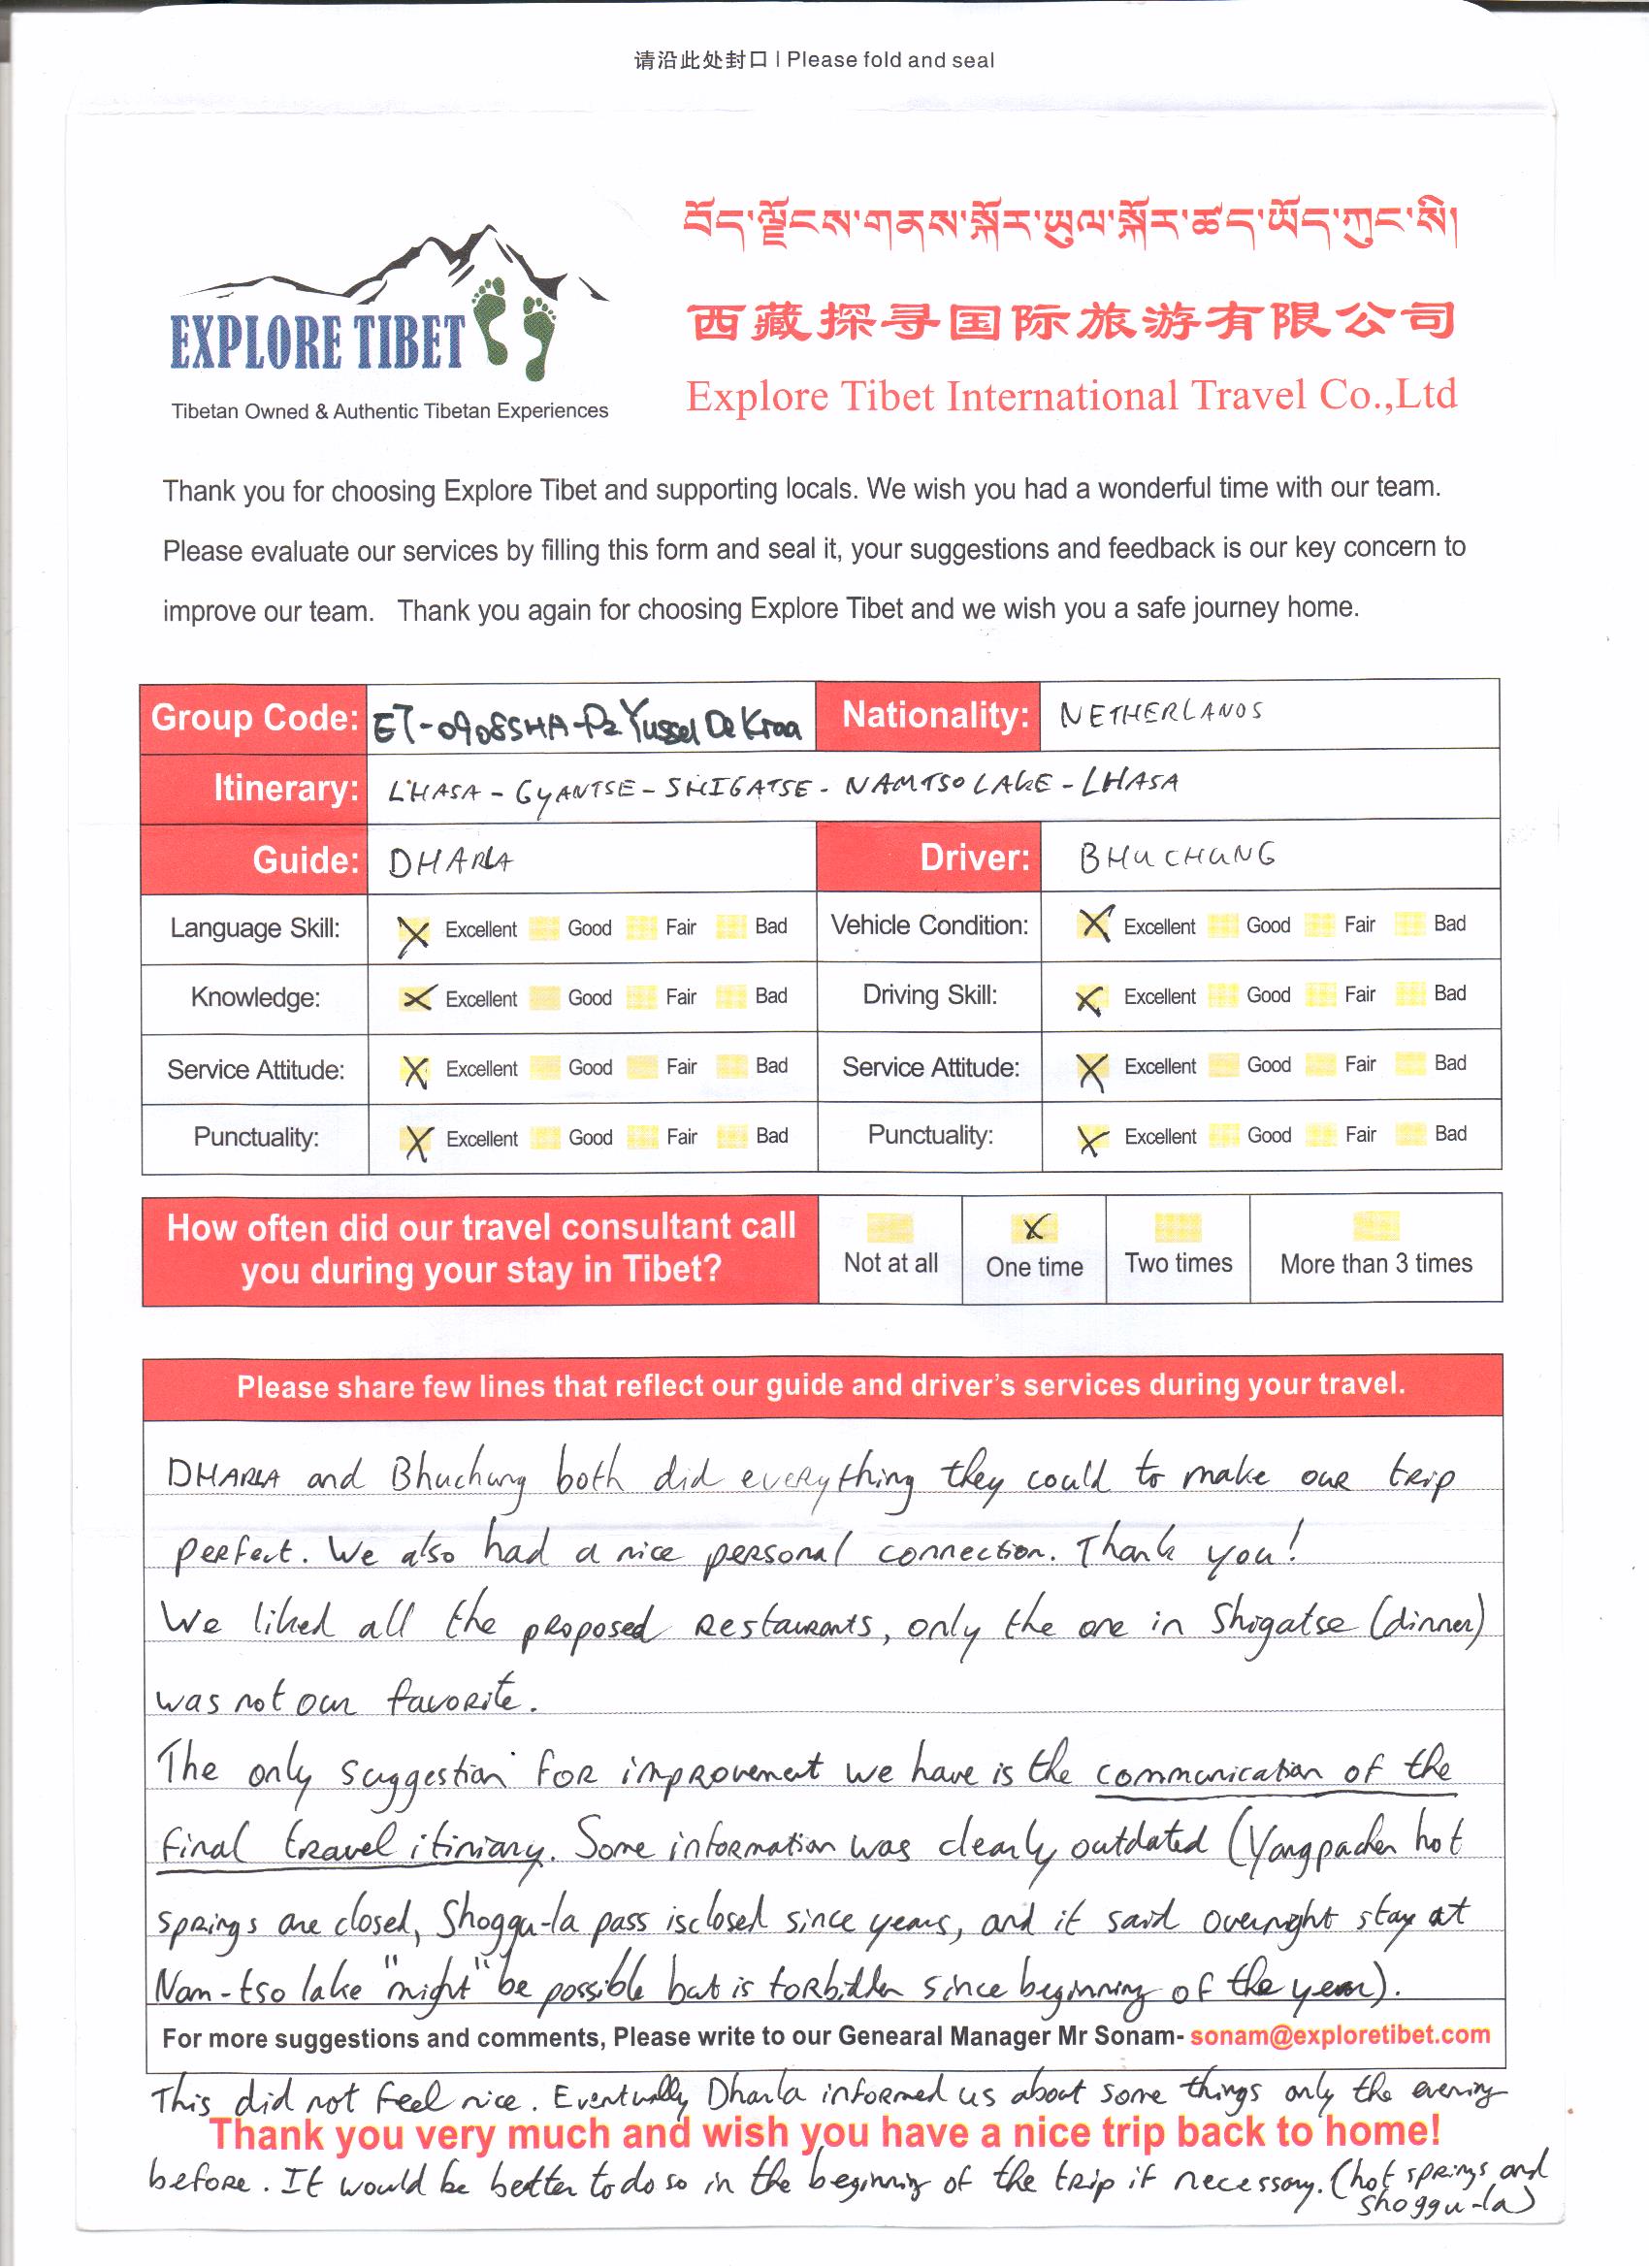 请沿此处封口 | Please fold and seal
EXPLORE TIBET
Tibetan Owned & Authentic Tibetan Experiences
བོད་ལྗོངས་གནས་སྐོར་ཡུལ་སྐོར་ཚད་ཡོད་ཀུང་སི།
西藏探寻国际旅游有限公司
Explore Tibet International Travel Co.,Ltd
Thank you for choosing Explore Tibet and supporting locals. We wish you had a wonderful time with our team.
Please evaluate our services by filling this form and seal it, your suggestions and feedback is our key concern to
improve our team. Thank you again for choosing Explore Tibet and we wish you a safe journey home.
Group Code: ET-0908SHA-P2 Yussel De Kraa Nationality: NETHERLANDS
Itinerary: LHASA - GYANTSE - SHIGATSE - NAMTSO LAKE - LHASA
Guide: DHARLA Driver: BHUCHUNG
Language Skill: X Excellent Good Fair Bad Vehicle Condition: X Excellent Good Fair Bad
Knowledge: X Excellent Good Fair Bad Driving Skill: X Excellent Good Fair Bad
Service Attitude: X Excellent Good Fair Bad Service Attitude: X Excellent Good Fair Bad
Punctuality: X Excellent Good Fair Bad Punctuality: X Excellent Good Fair Bad
How often did our travel consultant call
you during your stay in Tibet?
Not at all X One time Two times More than 3 times
Please share few lines that reflect our guide and driver's services during your travel.
DHARLA and Bhuchung both did everything they could to make our trip
perfect. We also had a nice personal connection. Thank you!
We liked all the proposed restaurants, only the one in Shigatse (dinner)
was not our favorite.
The only suggestion for improvement we have is the communication of the
final travel itiniary. Some information was clearly outdated (Yangpachen hot
springs are closed, Shoggu-la pass is closed since years, and it said overnight stay at
Nam-tso lake "might" be possible but is forbidden since beginning of the year).
For more suggestions and comments, Please write to our Genearal Manager Mr Sonam- sonam@exploretibet.com
This did not feel nice. Eventually Dharla informed us about some things only the evening
Thank you very much and wish you have a nice trip back to home!
before. It would be better to do so in the beginning of the trip if necessary. (hot springs and
shoggu-la)